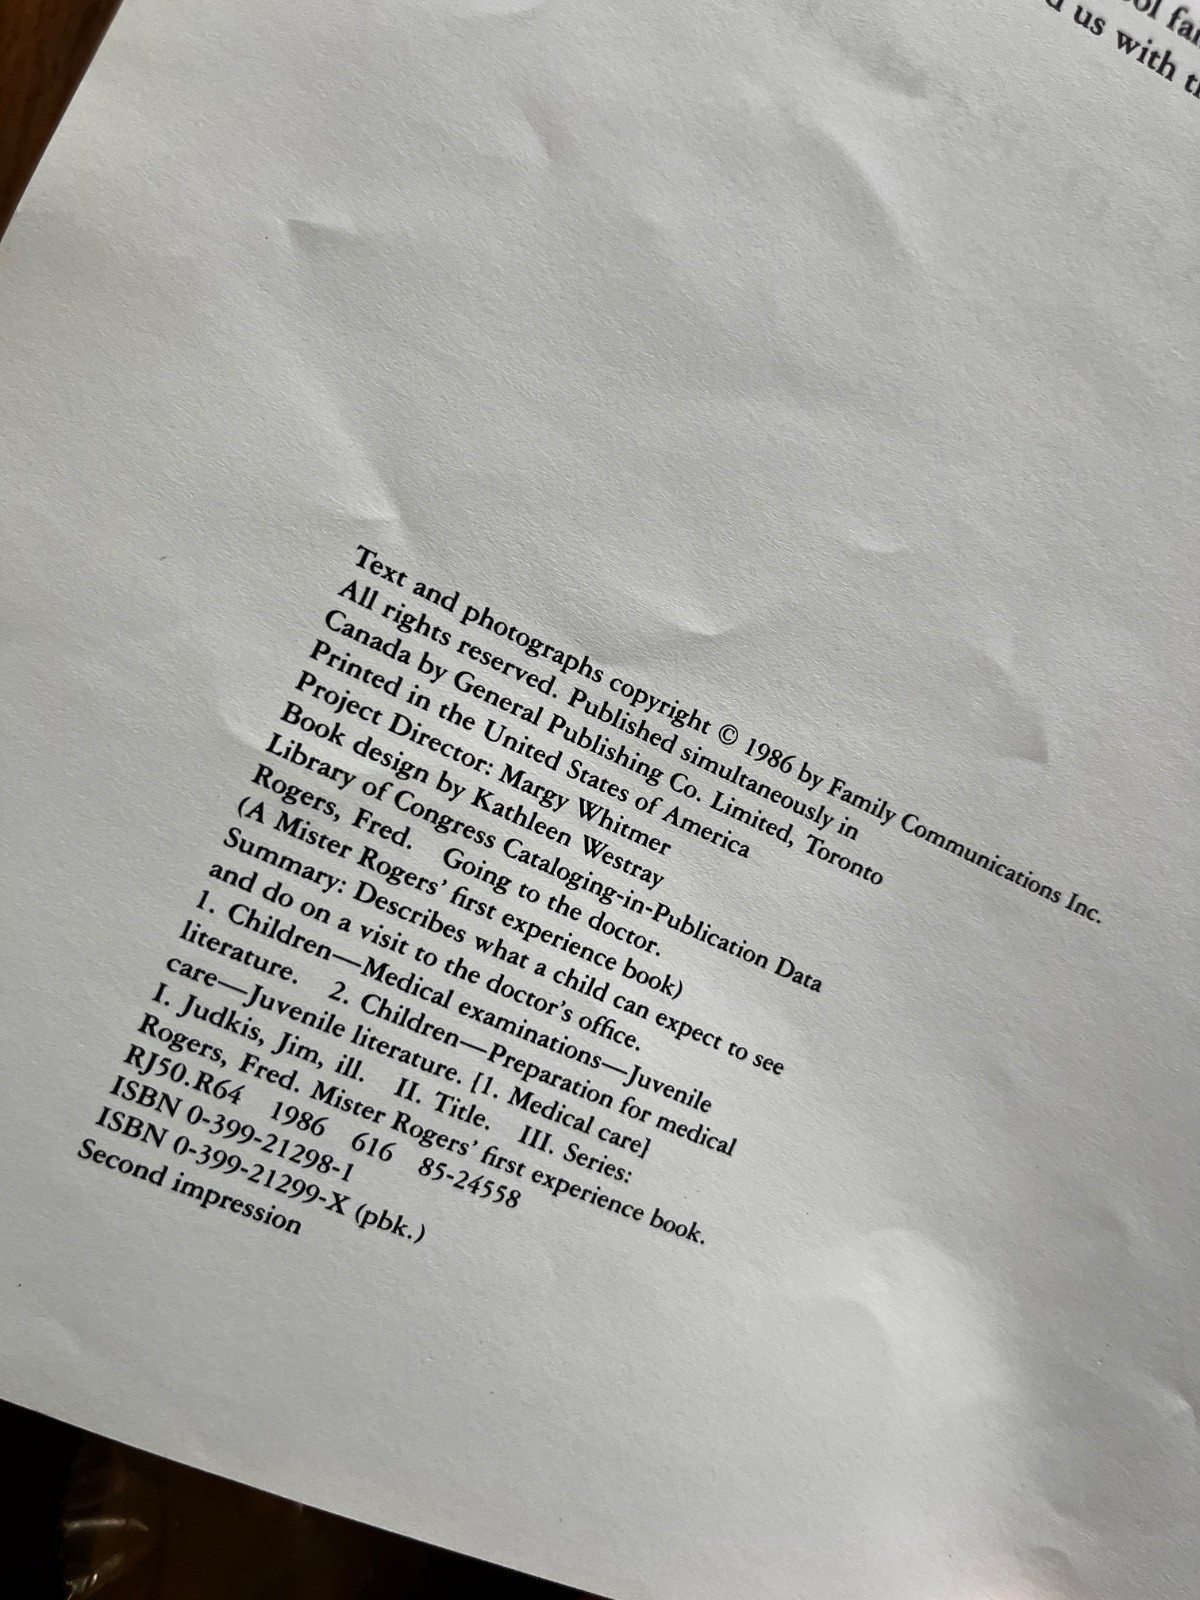 ool
d us with
Text and photographs copyright © 1986 by Family Communications Inc.
All rights reserved. Published simultaneously in
Canada by General Publishing Co. Limited, Toronto
Printed in the United States of America
Project Director: Margy Whitmer
Book design by Kathleen Westray
Library of Congress Cataloging-in-Publication Data
Rogers, Fred. Going to the doctor.
(A Mister Rogers' first experience book)
Summary: Describes what a child can expect to see
and do on a visit to the doctor's office.
1. Children—Medical examinations—Juvenile
literature. 2. Children—Preparation for medical
care—Juvenile literature. [1. Medical care]
I. Judkis, Jim, ill. II. Title. III. Series:
Rogers, Fred. Mister Rogers' first experience book.
RJ50.R64 1986 616 85-24558
ISBN 0-399-21298-1
ISBN 0-399-21299-X (pbk.)
Second impression